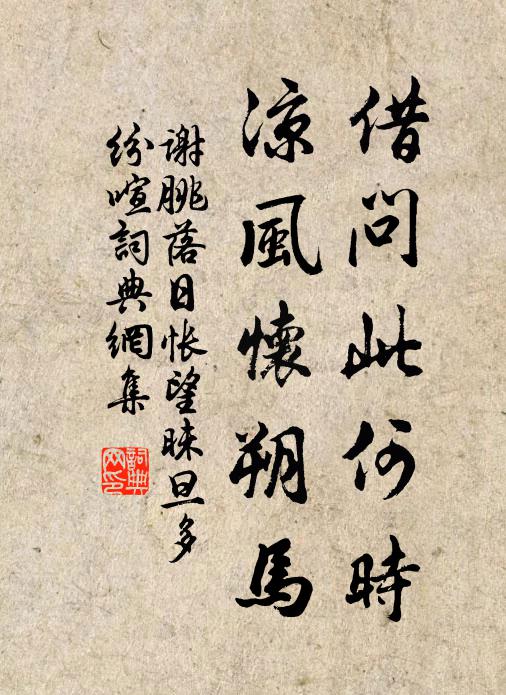 借問此何時
涼風懷朔馬
謝朓落日悵望昧旦多
紛喧詞典網集
詞典
网印